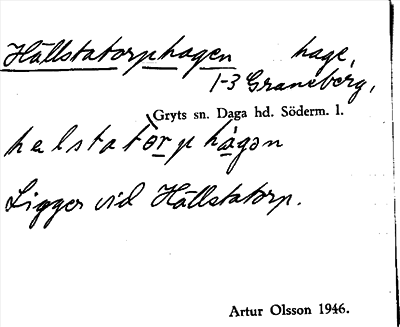 Hällstatorphagen hage,
1-3 Graneberg,
Gryts sn. Daga hd. Söderm. l.
helstatòrp hàgən
Ligger vid Hällstatorp.
Artur Olsson 1946.